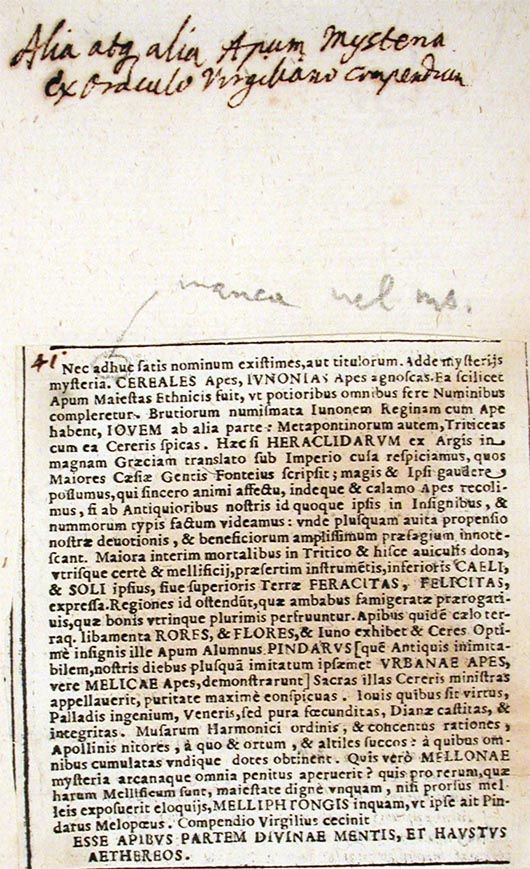 Alia atq alia Apum Mysteria
ex Oraculo Virgiliano compendium
manca nel ms.
41
Nec adhuc satis nominum existimes, aut titulorum. Adde mysterijs
mysteria. CEREALES Apes, IVNONIAS Apes agnoscas. Ea scilicet
Apum Maiestas Ethnicis fuit, vt potioribus omnibus fere Numinibus
compleretur. Brutiorum numismata Iunonem Reginam cum Ape
habent, IOVEM ab alia parte: Metapontinorum autem, Triticeas
cum ea Cereris spicas. Hæc si HERACLIDARVM ex Argis in
magnam Græciam translato sub Imperio cusa respiciamus, quos
Maiores Cæsiæ Gentis Fonteius scripsit; magis & Ipsi gaudere
possumus, qui sincero animi affectu, indeque & calamo Apes recoli-
mus, si ab Antiquioribus nostris id quoque ipsis in Insignibus, &
nummorum typis factum videamus: vnde plusquam auita propensio
nostræ deuotionis, & beneficiorum amplissimum præsagium innote-
scant. Maiora interim mortalibus in Tritico & hisce auiculis dona,
vtrisque certè & mellificij, præsertim instrumētis, inferioris CAELI,
& SOLI ipsius, siue superioris Terræ FERACITAS, FELICITAS,
expressa. Regiones id ostendūt, quæ ambabus famigeratæ prærogati-
uis, quæ bonis vtrinque plurimis perfruuntur. Apibus quidē cælo ter-
raq. libamenta RORES, & FLORES, & Iuno exhibet & Ceres. Opti-
mè insignis ille Apum Alumnus PINDARVS [quē Antiquis inimita-
bilem, nostris diebus plusquā imitatum ipsæmet VRBANAE APES,
vere MELICAE Apes, demonstrarunt] Sacras illas Cereris ministras
appellauerit, puritate maximè conspicuas. Iouis quibus sit virtus,
Palladis ingenium, Veneris, sed pura fœcunditas, Dianæ castitas, &
integritas. Musarum Harmonici ordinis, & concentus rationes,
Apollinis nitores, à quo & ortum, & altiles succos: à quibus om-
nibus cumulatas vndique dotes obtinent. Quis verò MELLONAE
mysteria arcanaque omnia penitus aperuerit? quis pro rerum, quæ
harum Mellificum sunt, maiestate dignè vnquam, nisi prorsus mel-
leis exposuerit eloquijs, MELLIPHTONGIS inquam, vt ipse ait Pin-
darus Melopœus. Compendio Virgilius cecinit
ESSE APIBVS PARTEM DIVINAE MENTIS, ET HAVSTVS
AETHEREOS.